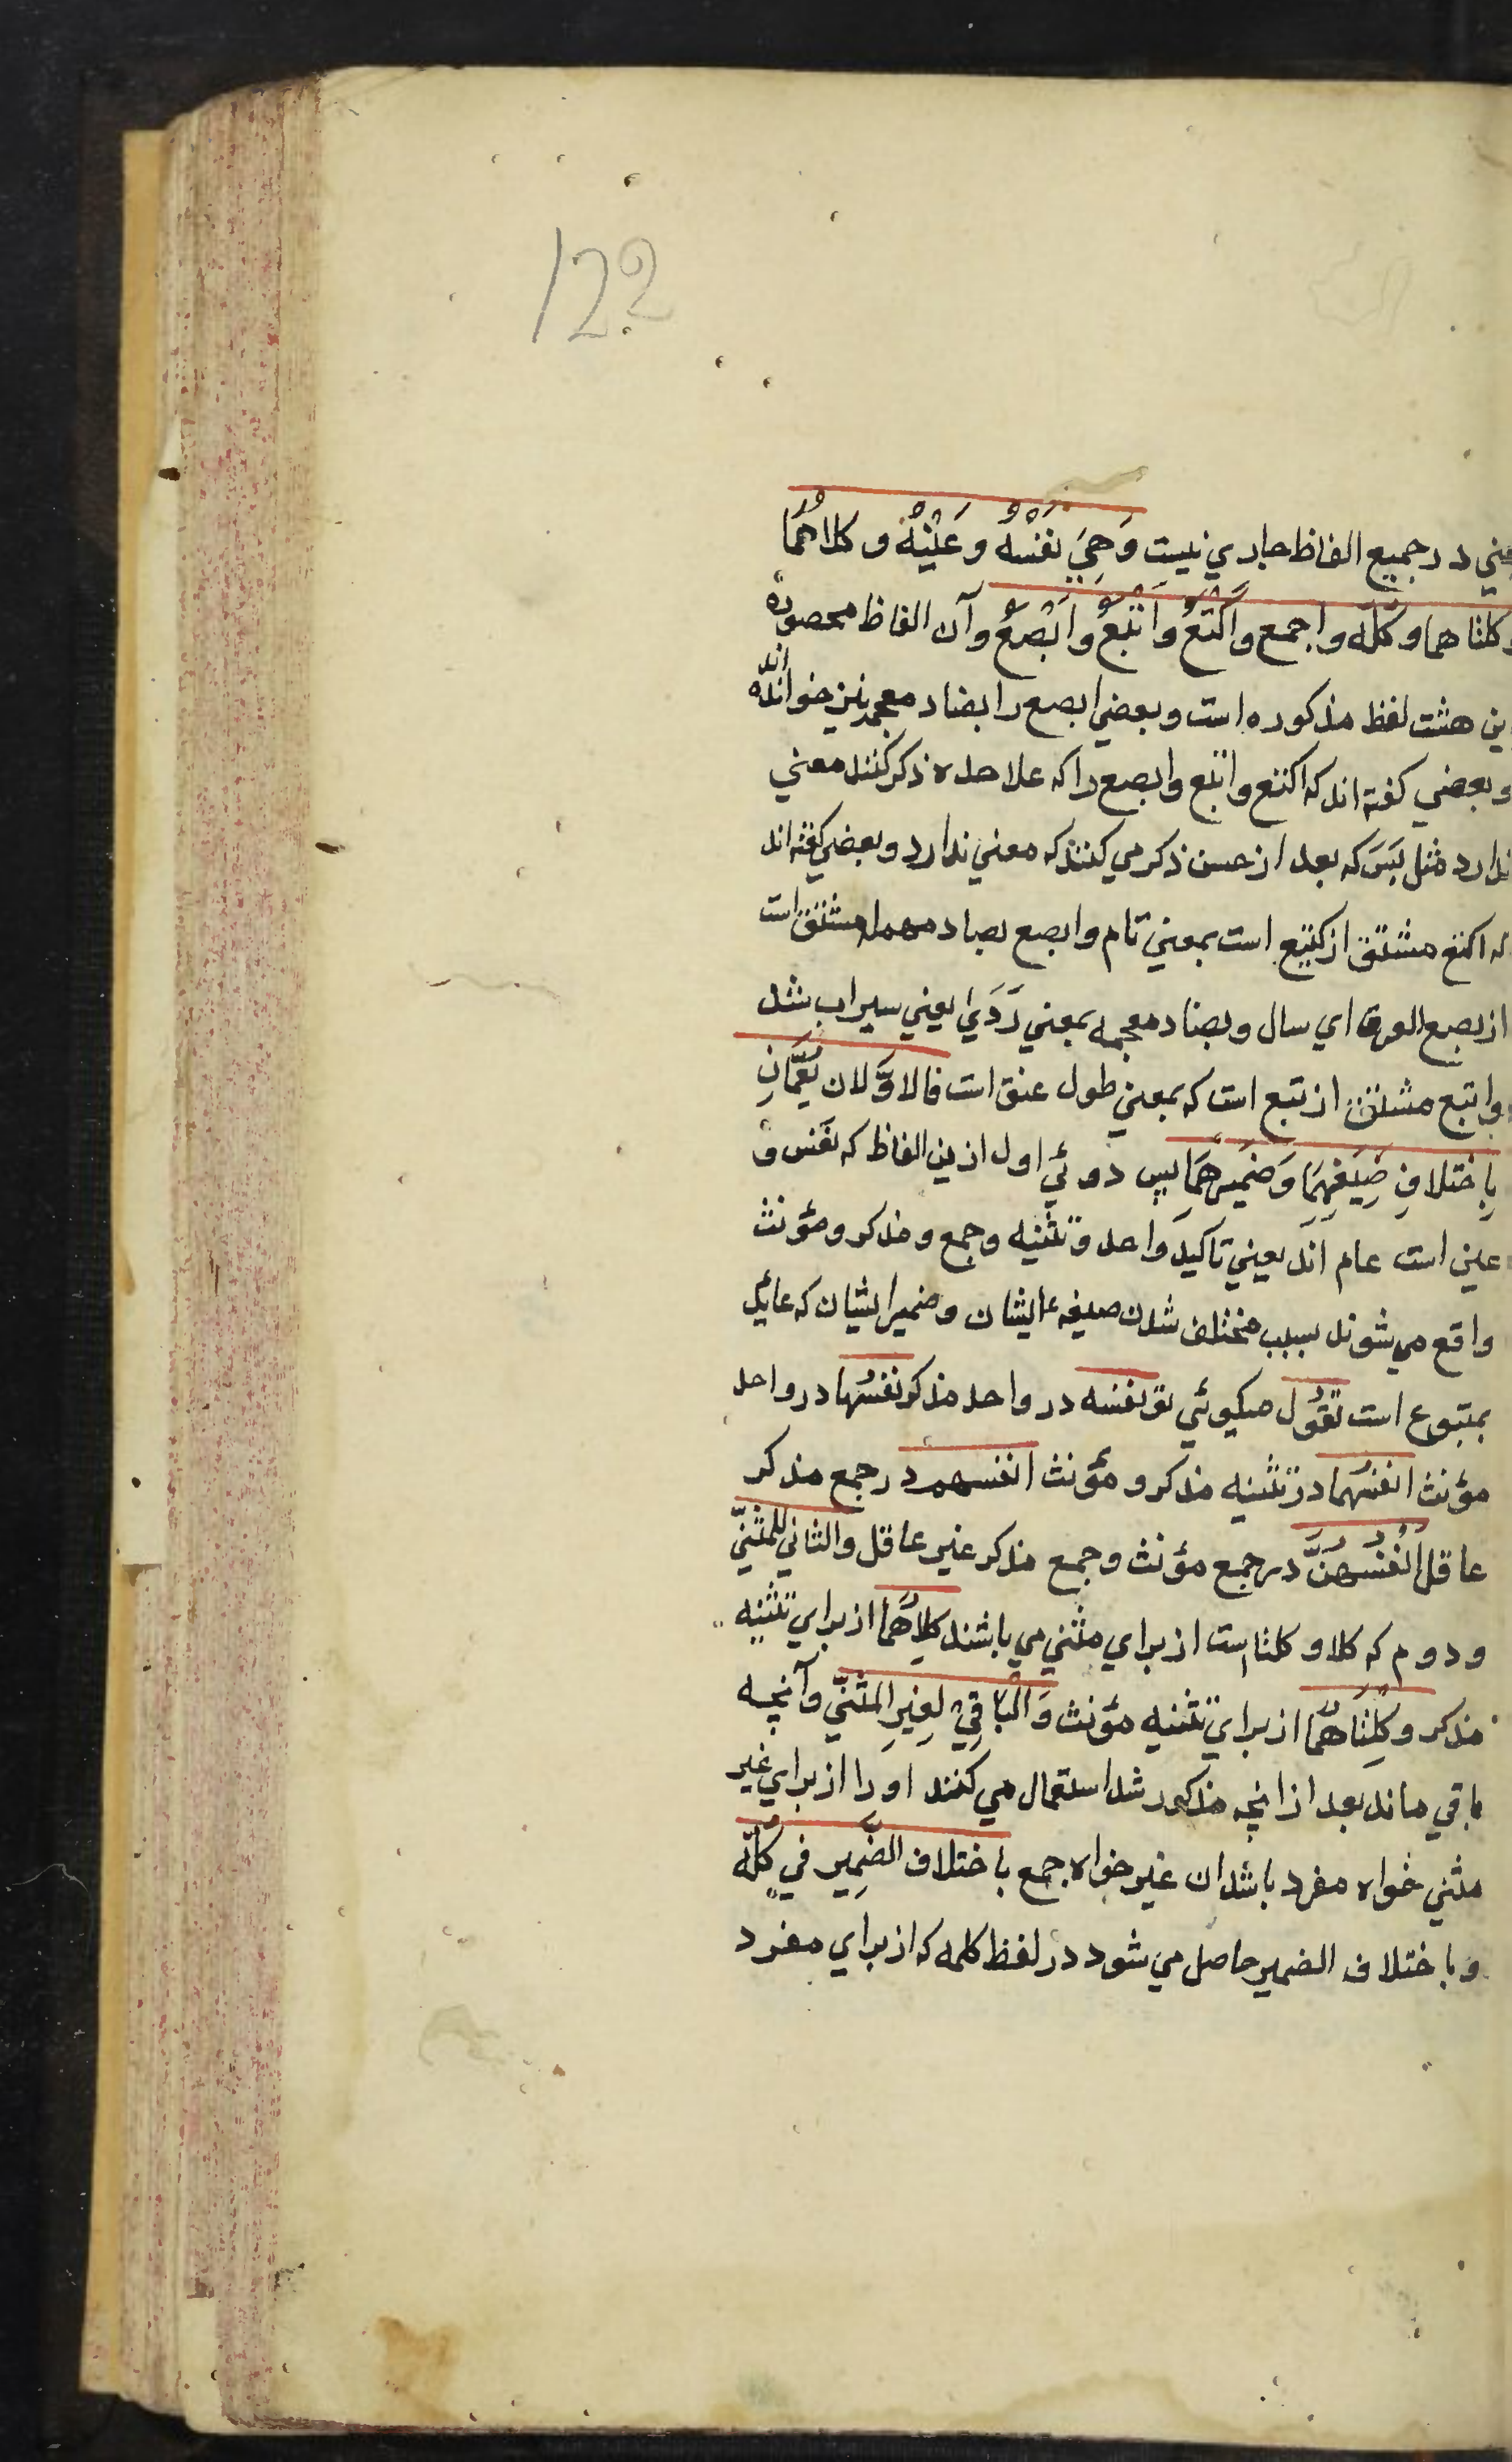 122
در جمیع الفاظ جاري نیست وَهِيَ نَفْسُهُ وَعَيْنُهُ و كلاهُمَا
كلتا هما وكُلّه و اجمع و اَكْتَعُ و اَتْبَعُ و اَبْصَعُ و آن الفاظ محصوره
ین هشت لفظ مذکوره است و بعضي ابصع را بضاد معجمه نیز خوانده اند
و بعضي گفته اند که اکتع و اتبع و ابصع را که علاحده ذکر کنند معني
ندارد مثل بَسَن که بعد از حسن ذکر مي کنند که معني ندارد و بعضي گفته اند
که اکتع مشتق از کتیع است بمعني تام و ابصع بصاد مهمله مشتق است
از بصع العرق اي سال و بضاد معجمه بمعني رَوَيَ یعني سیراب شد
و اتبع مشتق از تبع است که بمعني طول عنق است فالاوّلان يَعُمّانِ
بِاختلافِ صِيَغِهِمَا وَضَمِيرِهِمَا پس دوئي اول ازین الفاظ که نفس و
عین است عام اند یعني تاکید واحد و تثنیه و جمع و مذکر و مؤنث
واقع مي شوند بسبب مختلف شدن صیغهٔ ایشان و ضمیر ایشان که عاید
بمتبوع است تَقُول میگوئي تو نفسه در واحد مذکر نفسُها در واحد
مؤنث انفسُهما در تثنیه مذکر و مؤنث انفسهم در جمع مذکر
عاقل انفُسُهُنَّ در جمع مؤنث و جمع مذکر غیر عاقل والثاني للمثنّي
و دوم که کلا و کلتا است از براي مثني مي باشند كِلاهُمَا از براي تثنیه
مذکر و كِلْتَاهُمَا از براي تثنیه مؤنث وَالْبَاقِيْ لِغَيرِ المثنّي و آنچه
باقي ماند بعد ازانچه مذکور شد استعمال مي کنند او را از براي غیر
مثني خواه مفرد باشد ان غیر خواه جمع باختلاف الضّمِير في كُلّه
و باختلاف الضمیر حاصل مي شود در لفظ کلمه که از براي مفرد